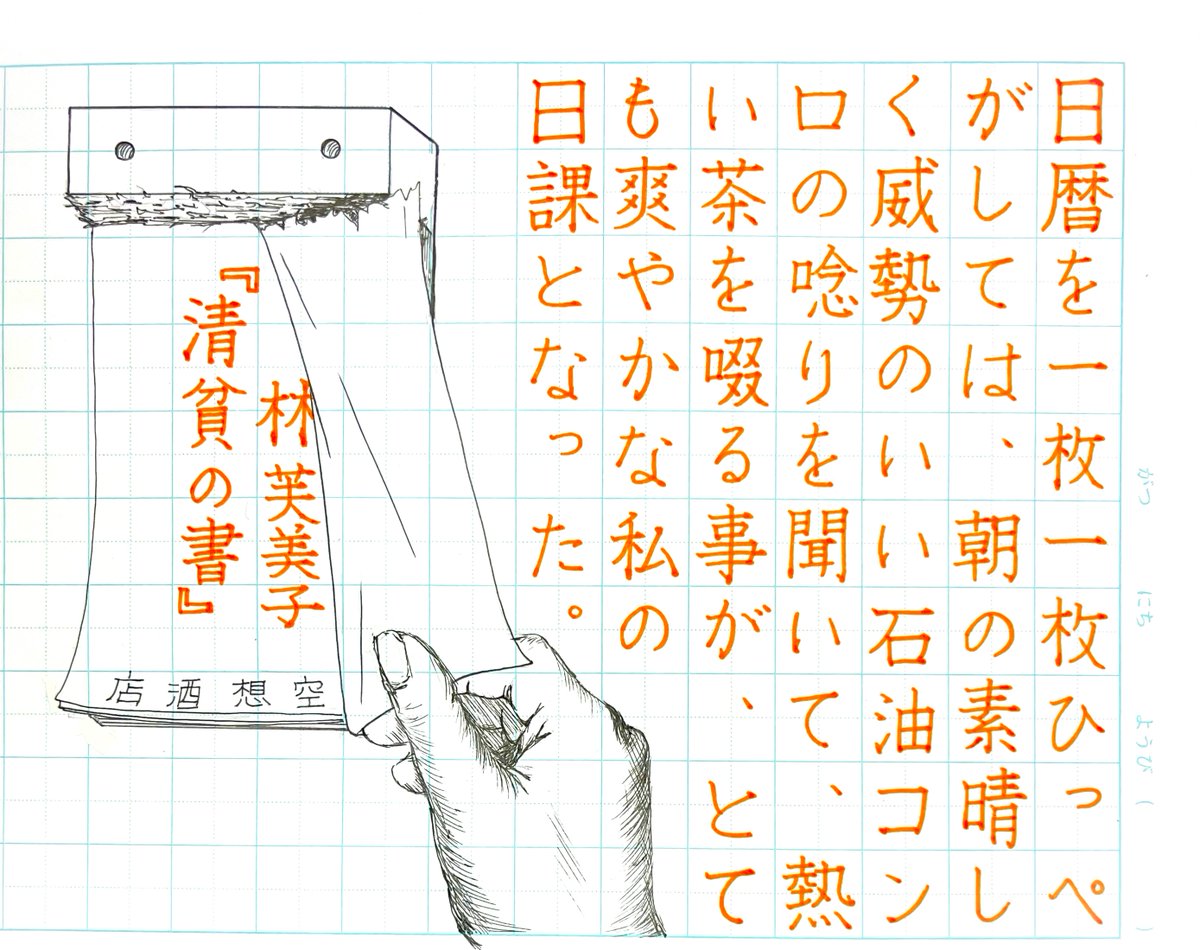 日暦を一枚一枚ひっぺ
がしては、朝の素晴し
く威勢のいい石油コン
ロの唸りを聞いて、熱
い茶を啜る事が、とて
も爽やかな私の
日課となった。
林芙美子
『清貧の書』
空想酒店
がつ にち ようび( )